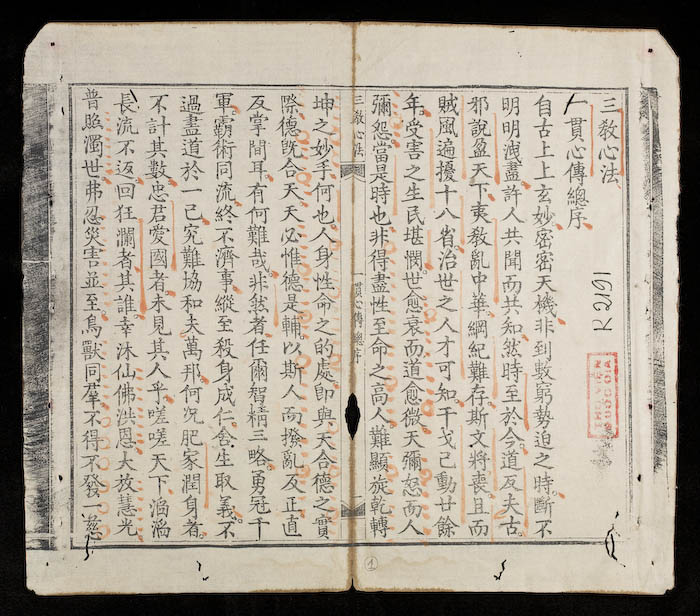 R 2191
THƯ VIỆN
QUỐC GIA
三教心法
一貫心傳總序
自古上上玄妙密密天機非到數窮勢迫之時斷不
明明洩盡許人共聞而共知然時至於今道反夫古
邪說盈天下夷教亂中華綱紀難存斯文將喪且而
賊風遍擾十八省治世之人才可知干戈已動廿餘
年受害之生民堪憫世愈衰而道愈微天彌怒而人
彌怨當是時也非得盡性至命之高人難顯旋乾轉
三教心法 一貫心傳總序 一
坤之妙手何也人身性命之的處即與天合德之實
際德既合天天必惟德是輔以斯人而撥亂反正直
反掌間耳有何難哉非然者任爾智精三略勇冠千
軍霸術同流終不濟事縱至殺身成仁舍生取義不
過盡道於一己究難協和夫萬邦何況肥家潤身者
不計其數忠君愛國者未見其人乎嗟嗟天下滔滔
長流不返回狂瀾者其誰幸沐仙佛洪恩大放慧光
普照濁世弗忍災害並至鳥獸同羣不得不發一慈
1